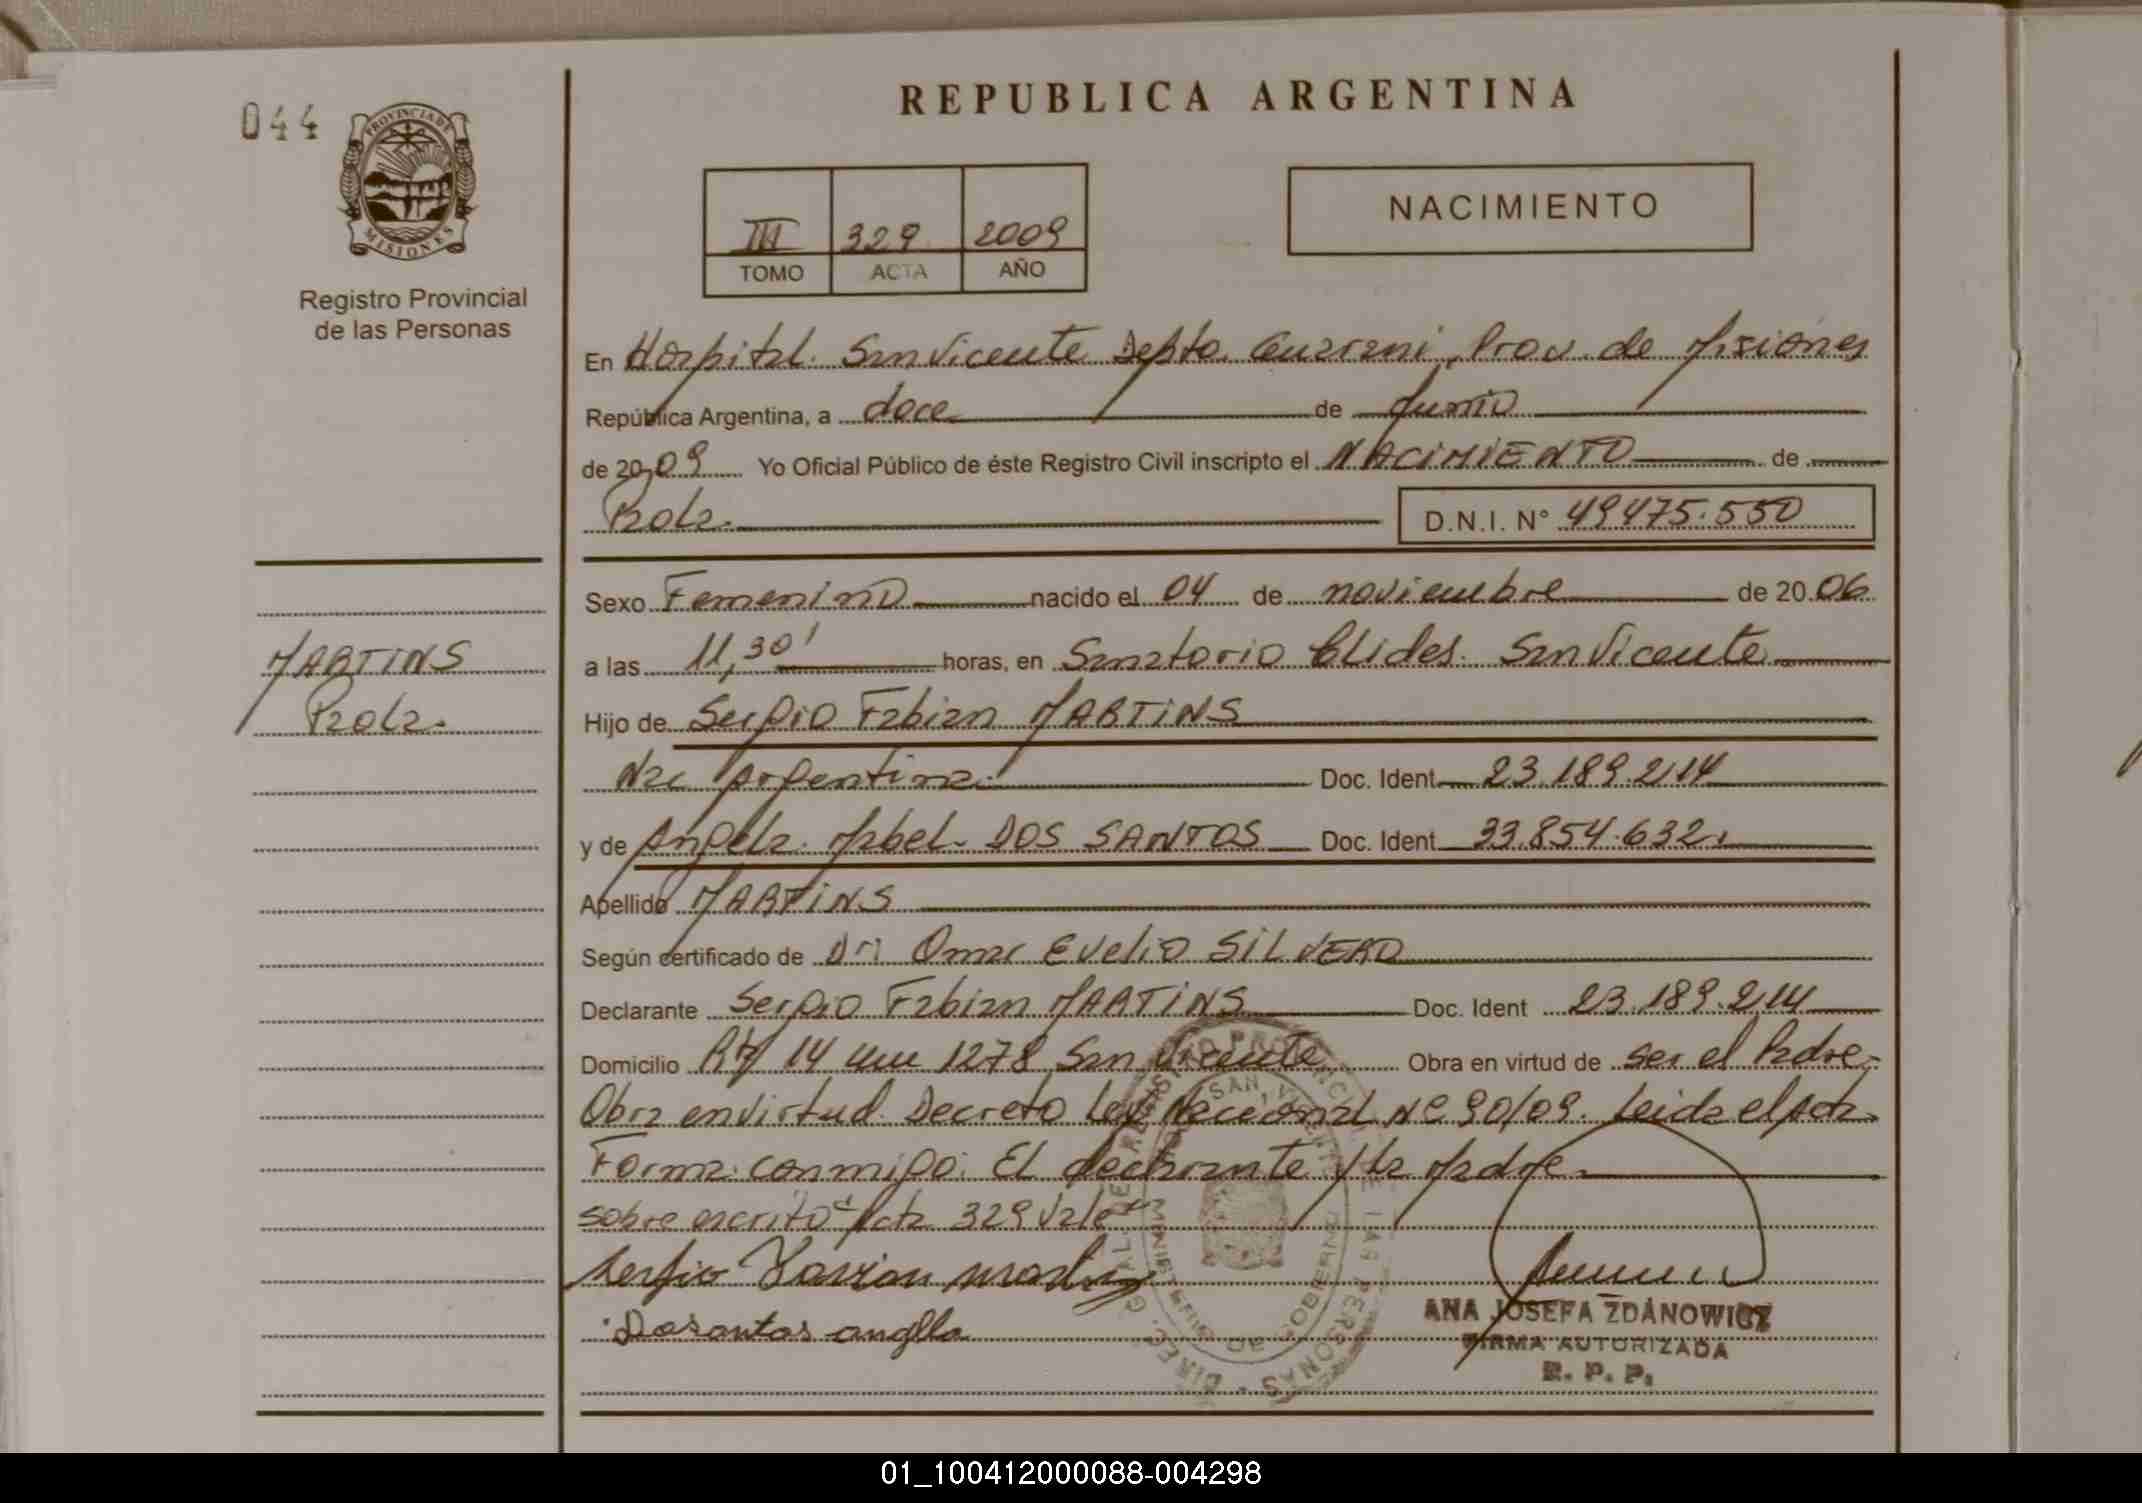 044
PROVINCIA DE
MISIONES
Registro Provincial
de las Personas
REPUBLICA ARGENTINA
III 329 2009
TOMO ACTA AÑO
NACIMIENTO
En Hospital San Vicente Depto. Guarani, Prov. de Misiones
República Argentina, a doce de Junio
de 2009 Yo Oficial Público de éste Registro Civil inscripto el NACIMIENTO de
Paola. D.N.I. N° 49475.550
Sexo Femenino nacido el 04 de noviembre de 2006
MARTINS
a las 11,30' horas, en Sanatorio Clides. San Vicente
Paola.
Hijo de Sergio Fabian MARTINS
Nac Argentina. Doc. Ident 23.189.214
y de Angela. Mabel. DOS SANTOS Doc. Ident 33.854.632.
Apellido MARTINS
Según certificado de Dr. Omar Evelio SILVERO
Declarante Sergio Fabian MARTINS Doc. Ident 23.189.214
Domicilio 14 1278 San Vicente Obra en virtud de ser el Padre.
Obra en virtud. Decreto Ley Nacional Nº 90/09. Leida el Acta.
Forma conmigo. El declarante y la Madre.
sobre escrito "Acta 329 vale"
Sergio Favian
Dosantos angela
ANA JOSEFA ZDANOWICZ
FIRMA AUTORIZADA
R. P. P.
01_100412000088-004298